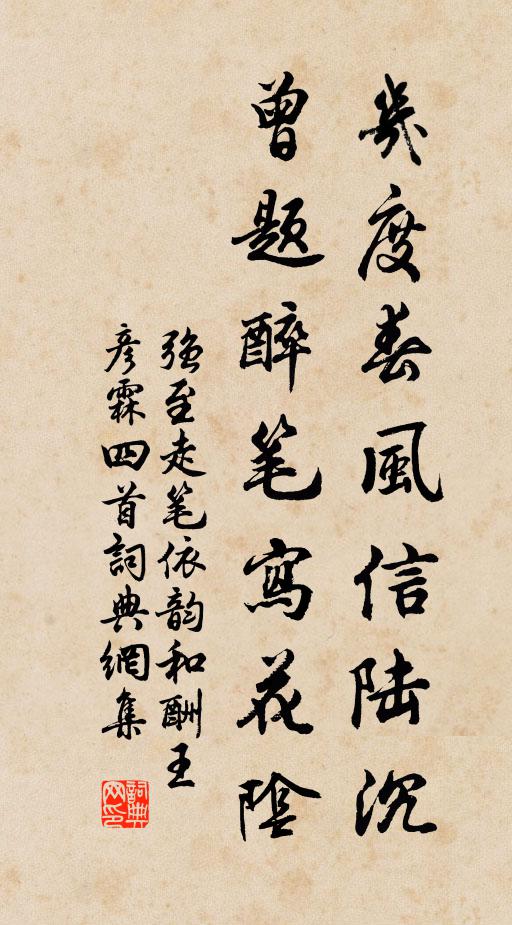 幾度春風信陆沉
曾题醉笔寫花陰
强至走笔依韵和酬王
彦霖四首詞典網集
詞典网印